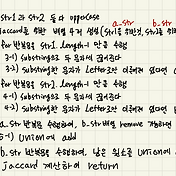 str1 과 str2 둘다 uppercase
a_str b_str
jaccard를 위한 배열 두개 생성 (str1을 위한것, str2을 위한
for 반복문을 str1.length-1 만큼 수행
3-1) substring으로 두 문자씩 끊어준다
3-2) substring한 문자가 Letter로만 이루어져 있다면
for 반복문을 str2.length-1 만큼 수행
4-1) substring으로 두 문자씩 끊어준다
3-2) substring한 문자가 Letter로만 이루어져 있다면
a_str 반복문 수행하여, b_str배열 remove 가능하면
5-1) Union에 add
b_str 반복문 수행하여, 남은 원소를 Union에
Jaccard 계산하여 return